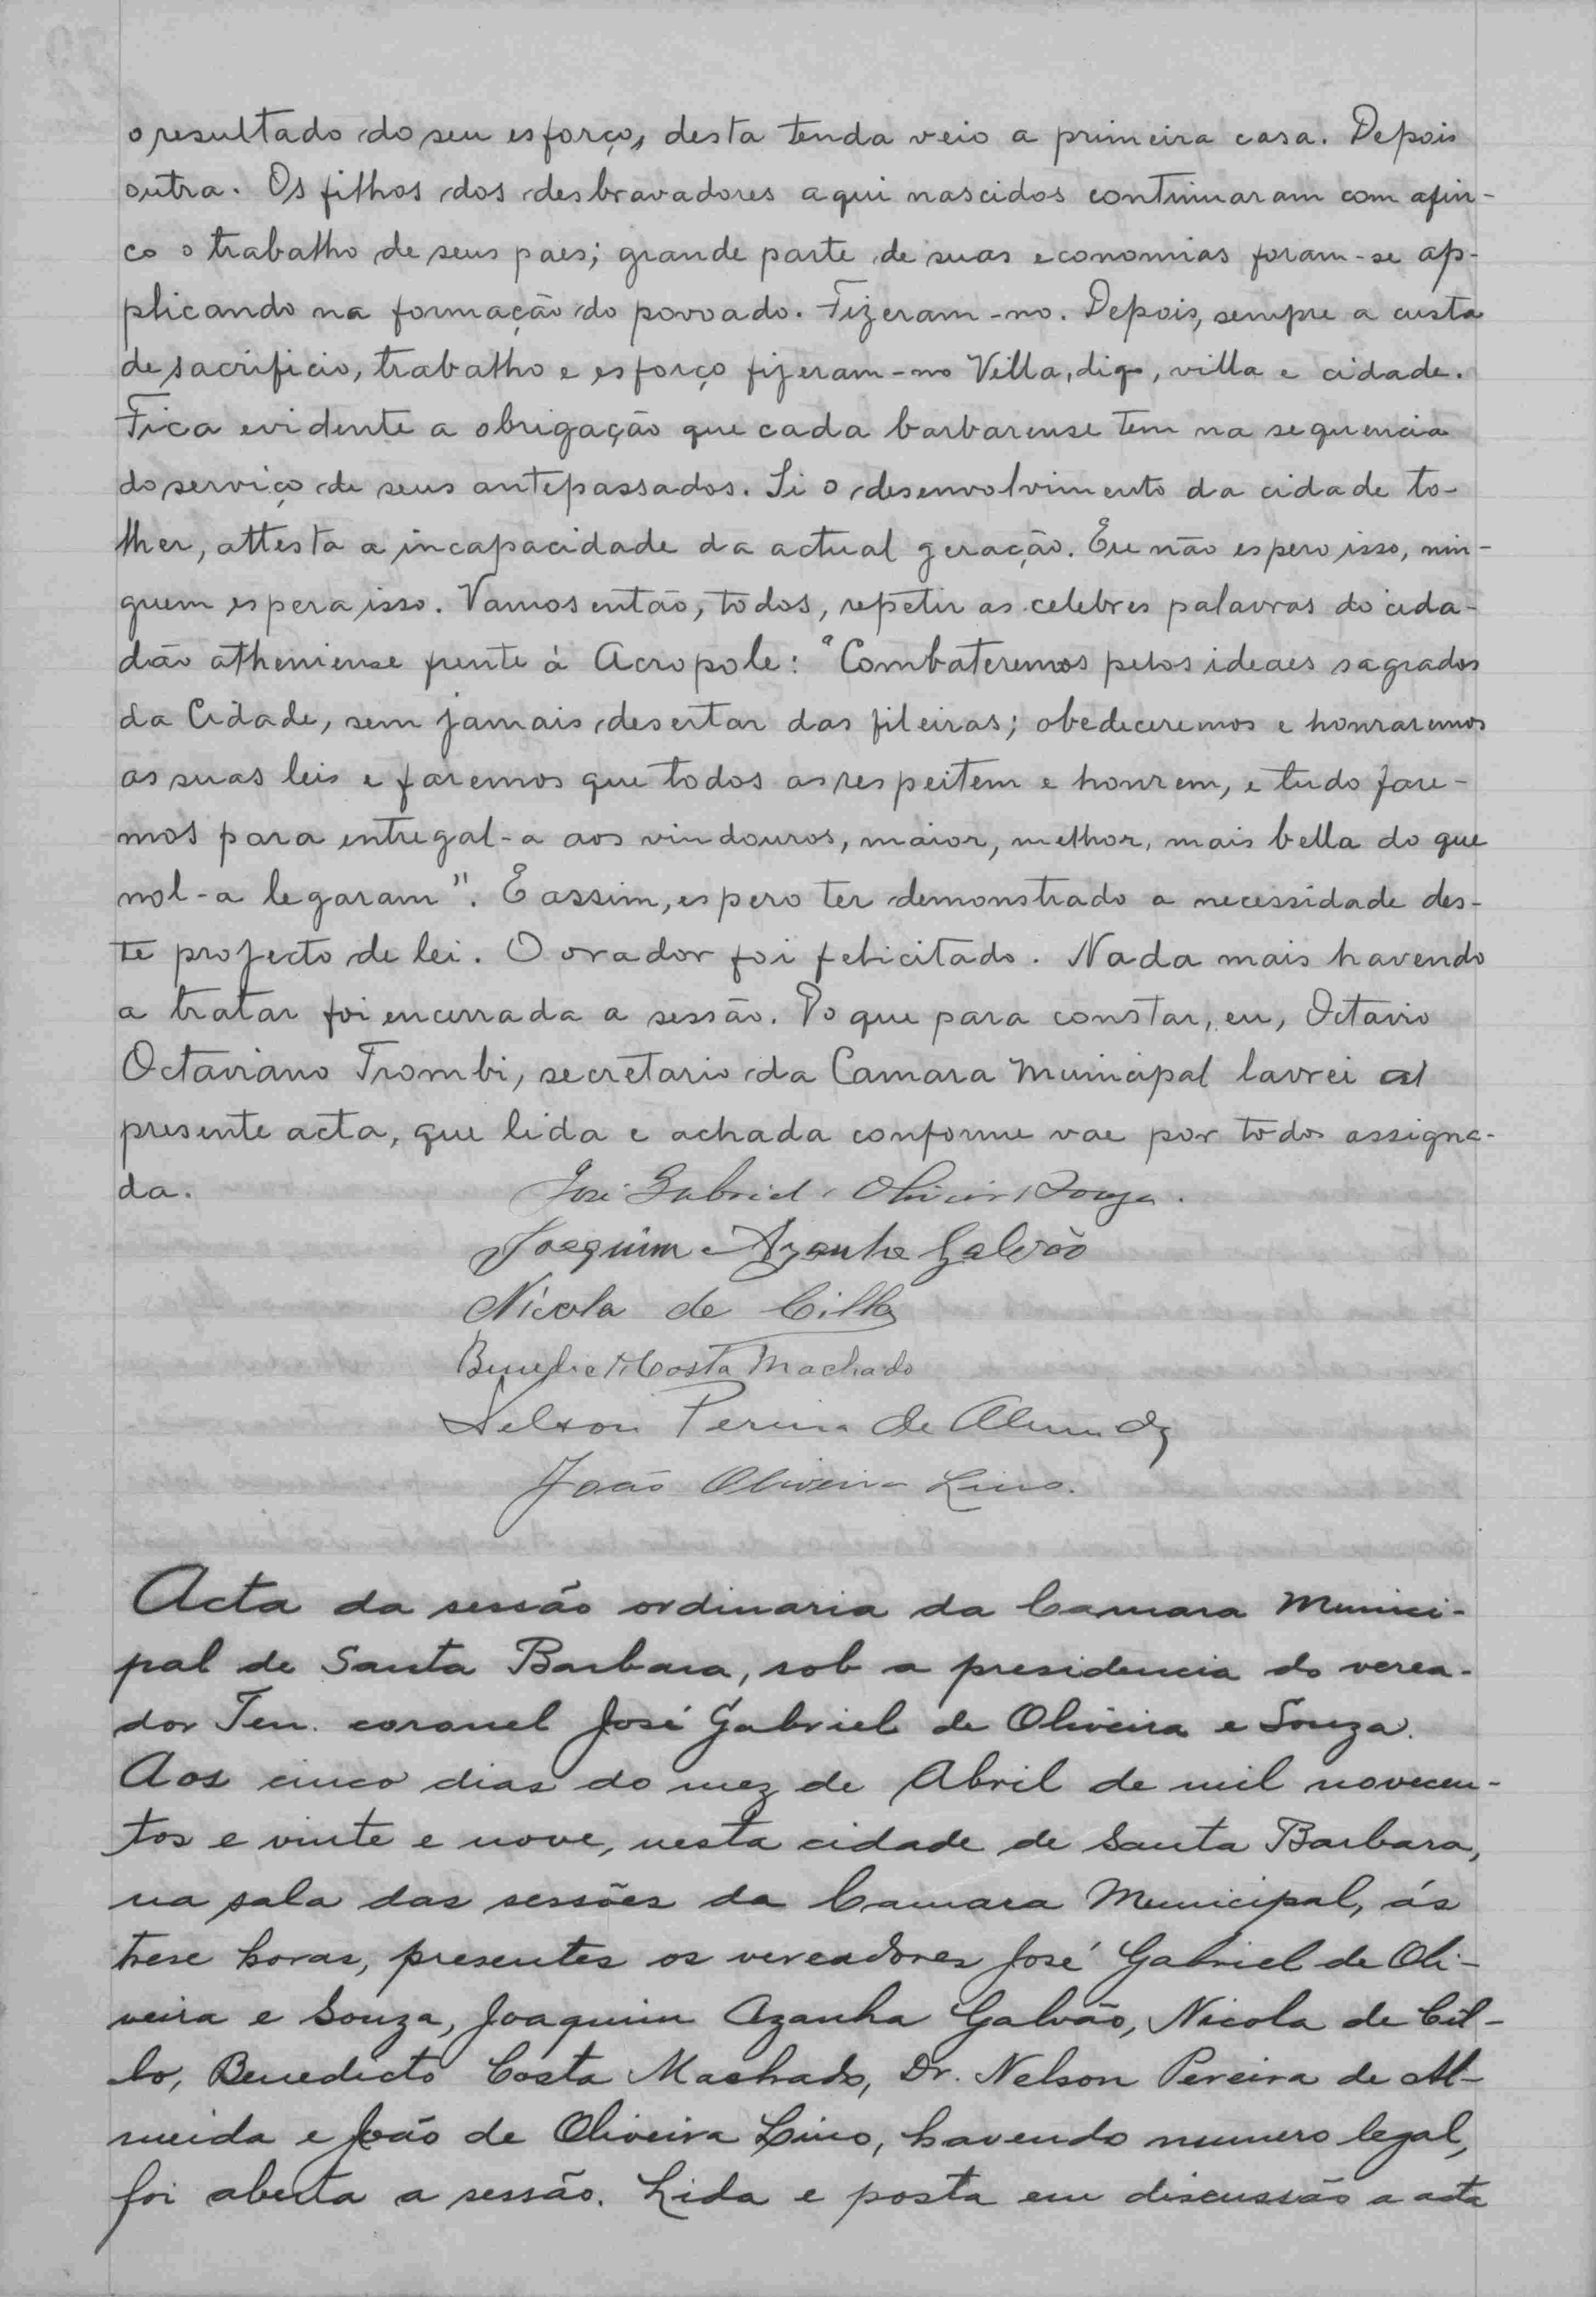 o resultado do seu esforço, desta tenda veio a primeira casa. Depois
outra. Os filhos dos desbravadores aqui nascidos continuaram com afin-
co o trabalho de seus paes; grande parte de suas economias foram-se ap-
plicando na formação do povoado. Fizeram-no. Depois, sempre a custa
de sacrificio, trabalho e esforço fizeram-no Villa, digo, villa e cidade.
Fica evidente a obrigação que cada barbarense tem na sequencia
do serviço de seus antepassados. Si o desenvolvimento da cidade to-
lher, attesta a incapacidade da actual geração. Eu não espero isso, nin-
guem espera isso. Vamos então, todos, repetir as celebres palavras do cida-
dão atheniense frente á Acropole: "Combateremos pelos ideaes sagrados
da Cidade, sem jamais desertar das fileiras; obedeceremos e honraremos
as suas leis e faremos que todos as respeitem e honrem, e tudo fare-
mos para entregal-a aos vindouros, maior, melhor, mais bella do que
nol-a legaram". E assim, espero ter demonstrado a necessidade des-
te projecto de lei. O orador foi felicitado. Nada mais havendo
a tratar foi encerrada a sessão. Do que para constar, eu, Octavio
Octaviano Trombi, secretario da Camara Municipal lavrei a
presente acta, que lida e achada conforme vae por todos assigna-
da.
José Gabriel Oliveira Souza.
Joaquim Azanha Galvão
Nicola de Cillo
Benedicto Costa Machado
Nelson Pereira de Almeida
João Oliveira Lino.
Acta da sessão ordinaria da Camara Munici-
pal de Santa Barbara, sob a presidencia do verea-
dor Ten. coronel José Gabriel de Oliveira e Souza.
Aos cinco dias do mez de Abril de mil novecen-
tos e vinte e nove, nesta cidade de Santa Barbara,
na sala das sessões da Camara Municipal, ás
trese horas, presentes os vereadores José Gabriel de Oli-
veira e Souza, Joaquim Azanha Galvão, Nicola de Cil-
lo, Benedicto Costa Machado, Dr. Nelson Pereira de Al-
meida e João de Oliveira Lino, havendo numero legal,
foi aberta a sessão. Lida e posta em discussão a acta